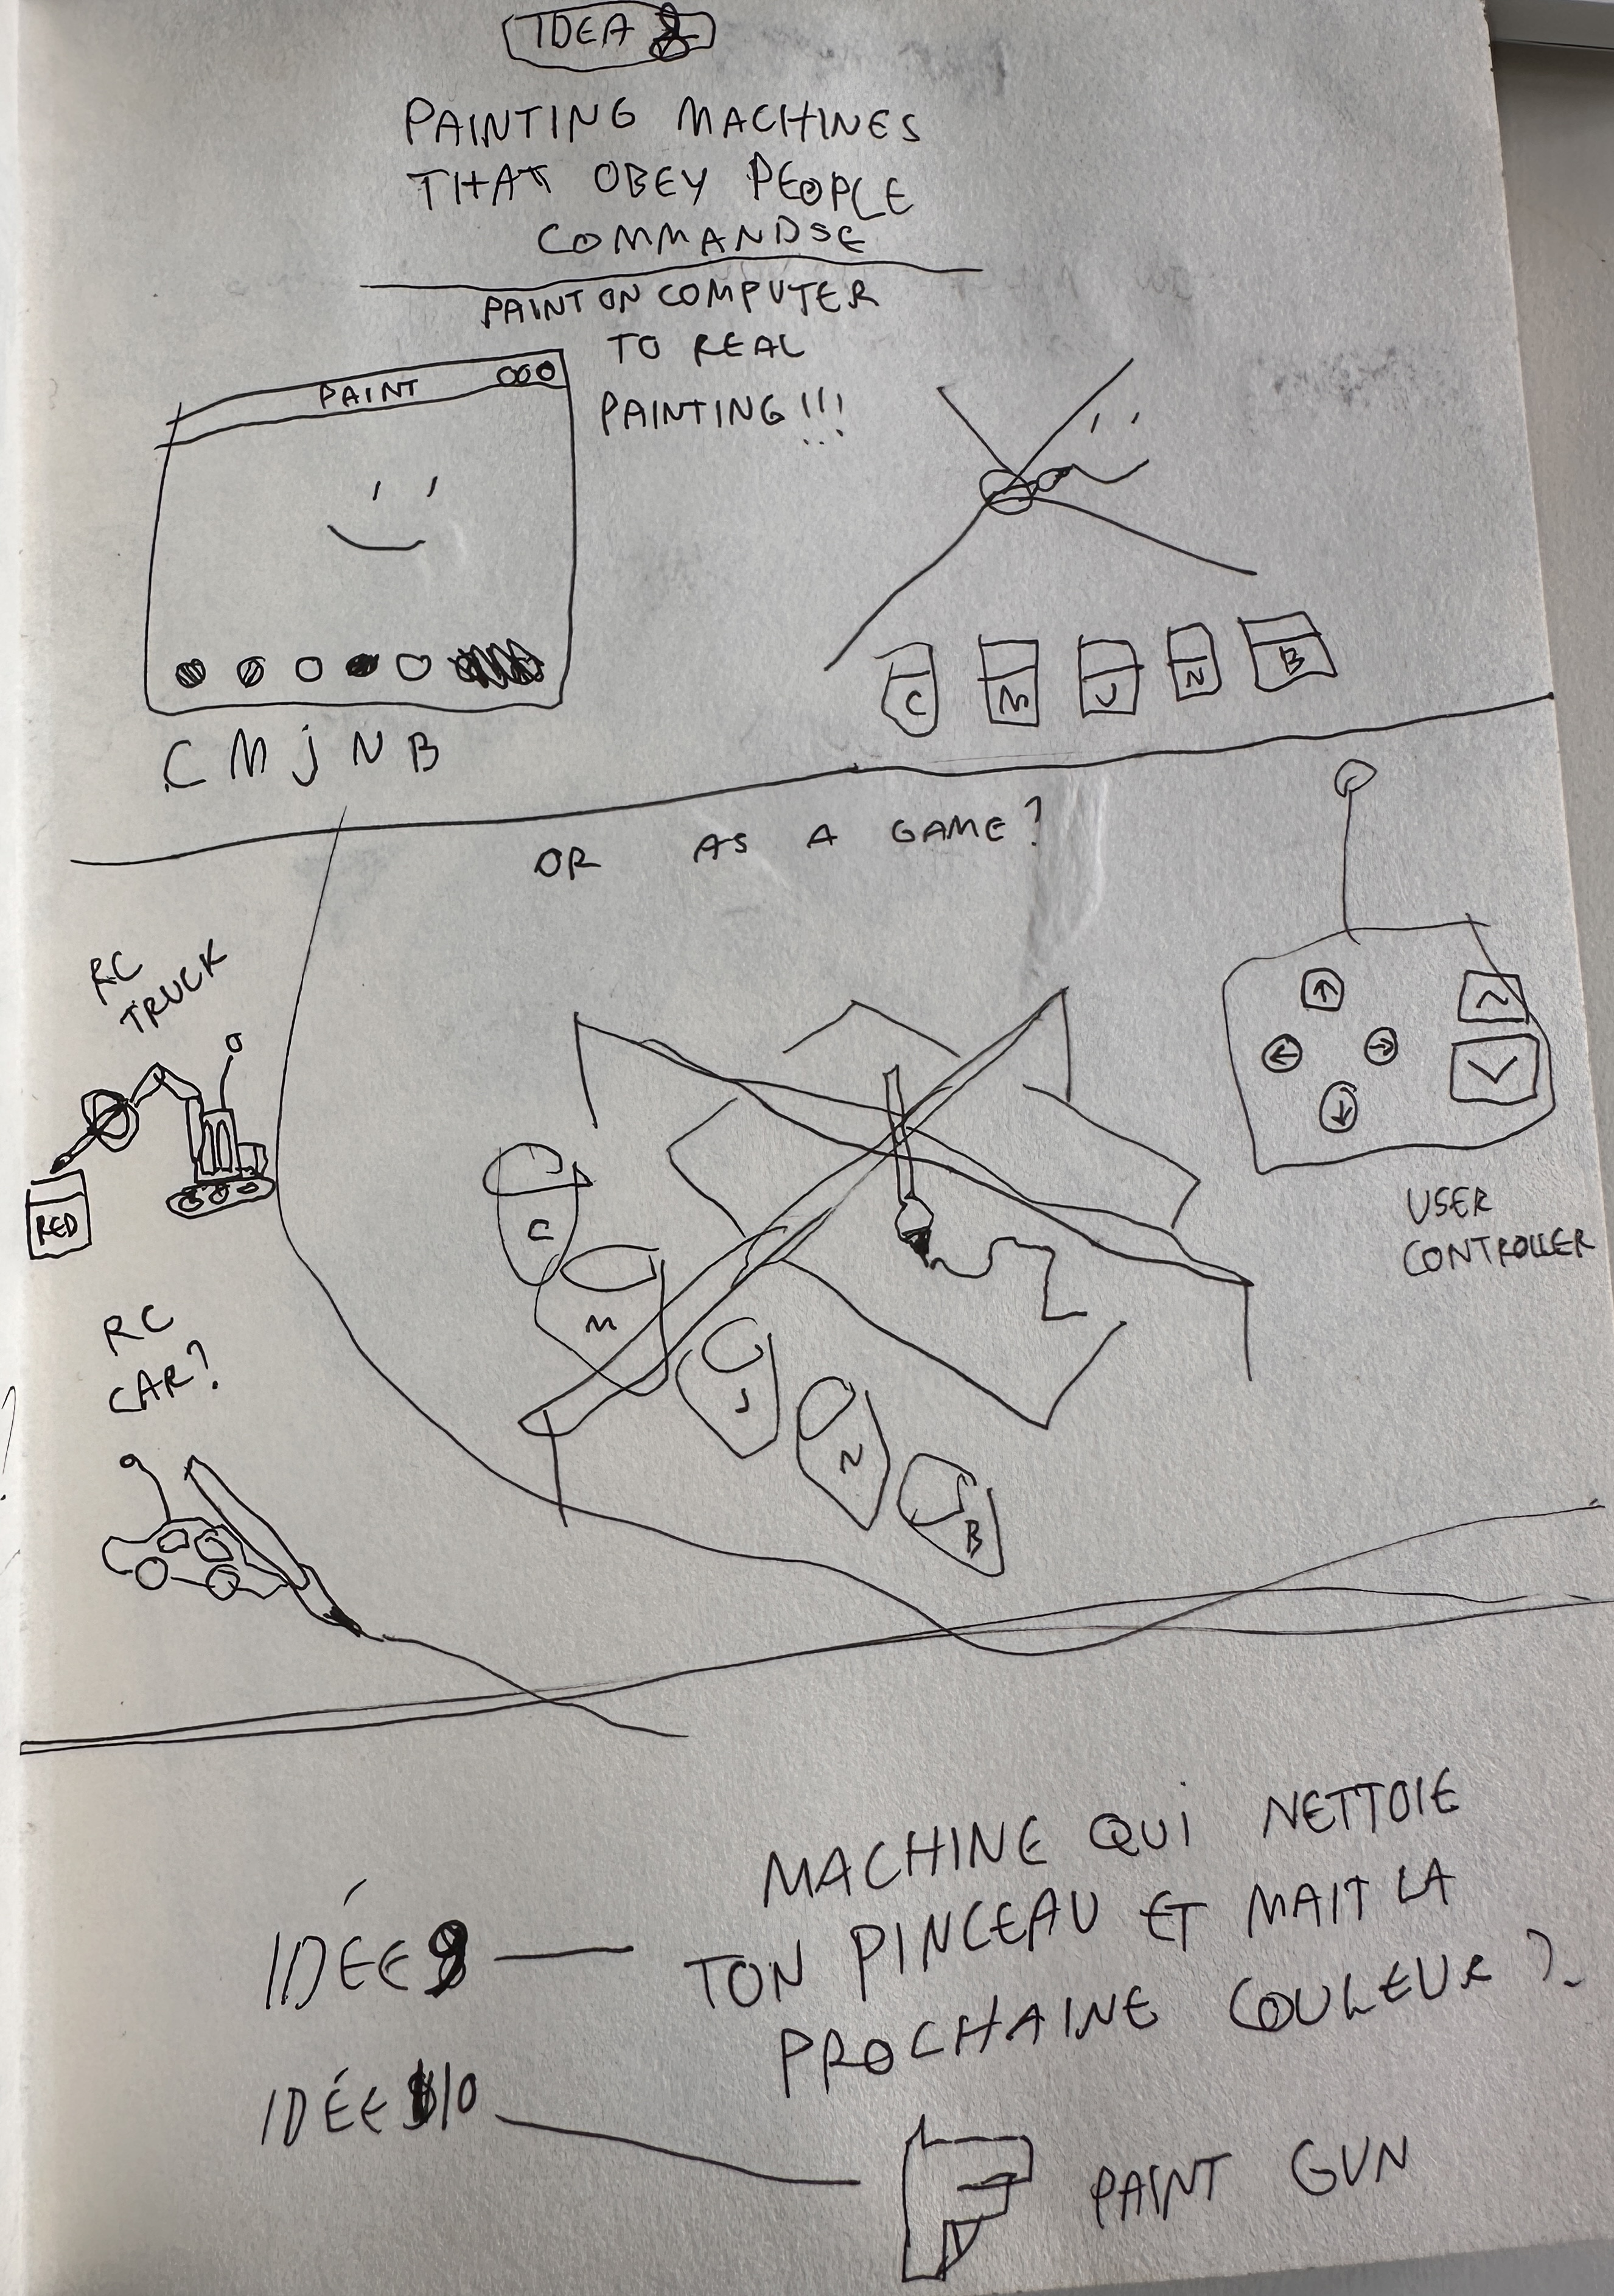 IDEA 8
PAINTING MACHINES
THAT OBEY PEOPLE
COMMANDSE
PAINT ON COMPUTER
TO REAL
PAINTING !!!
PAINT
C M J N B
C M J N B
OR AS A GAME?
RC
TRUCK
RED
C
M
J
N
B
USER
CONTROLLER
RC
CAR?
IDÉE 9
MACHINE QUI NETTOIE
TON PINCEAU ET MAIT LA
PROCHAINE COULEUR ?
IDÉE 10
PAINT GUN